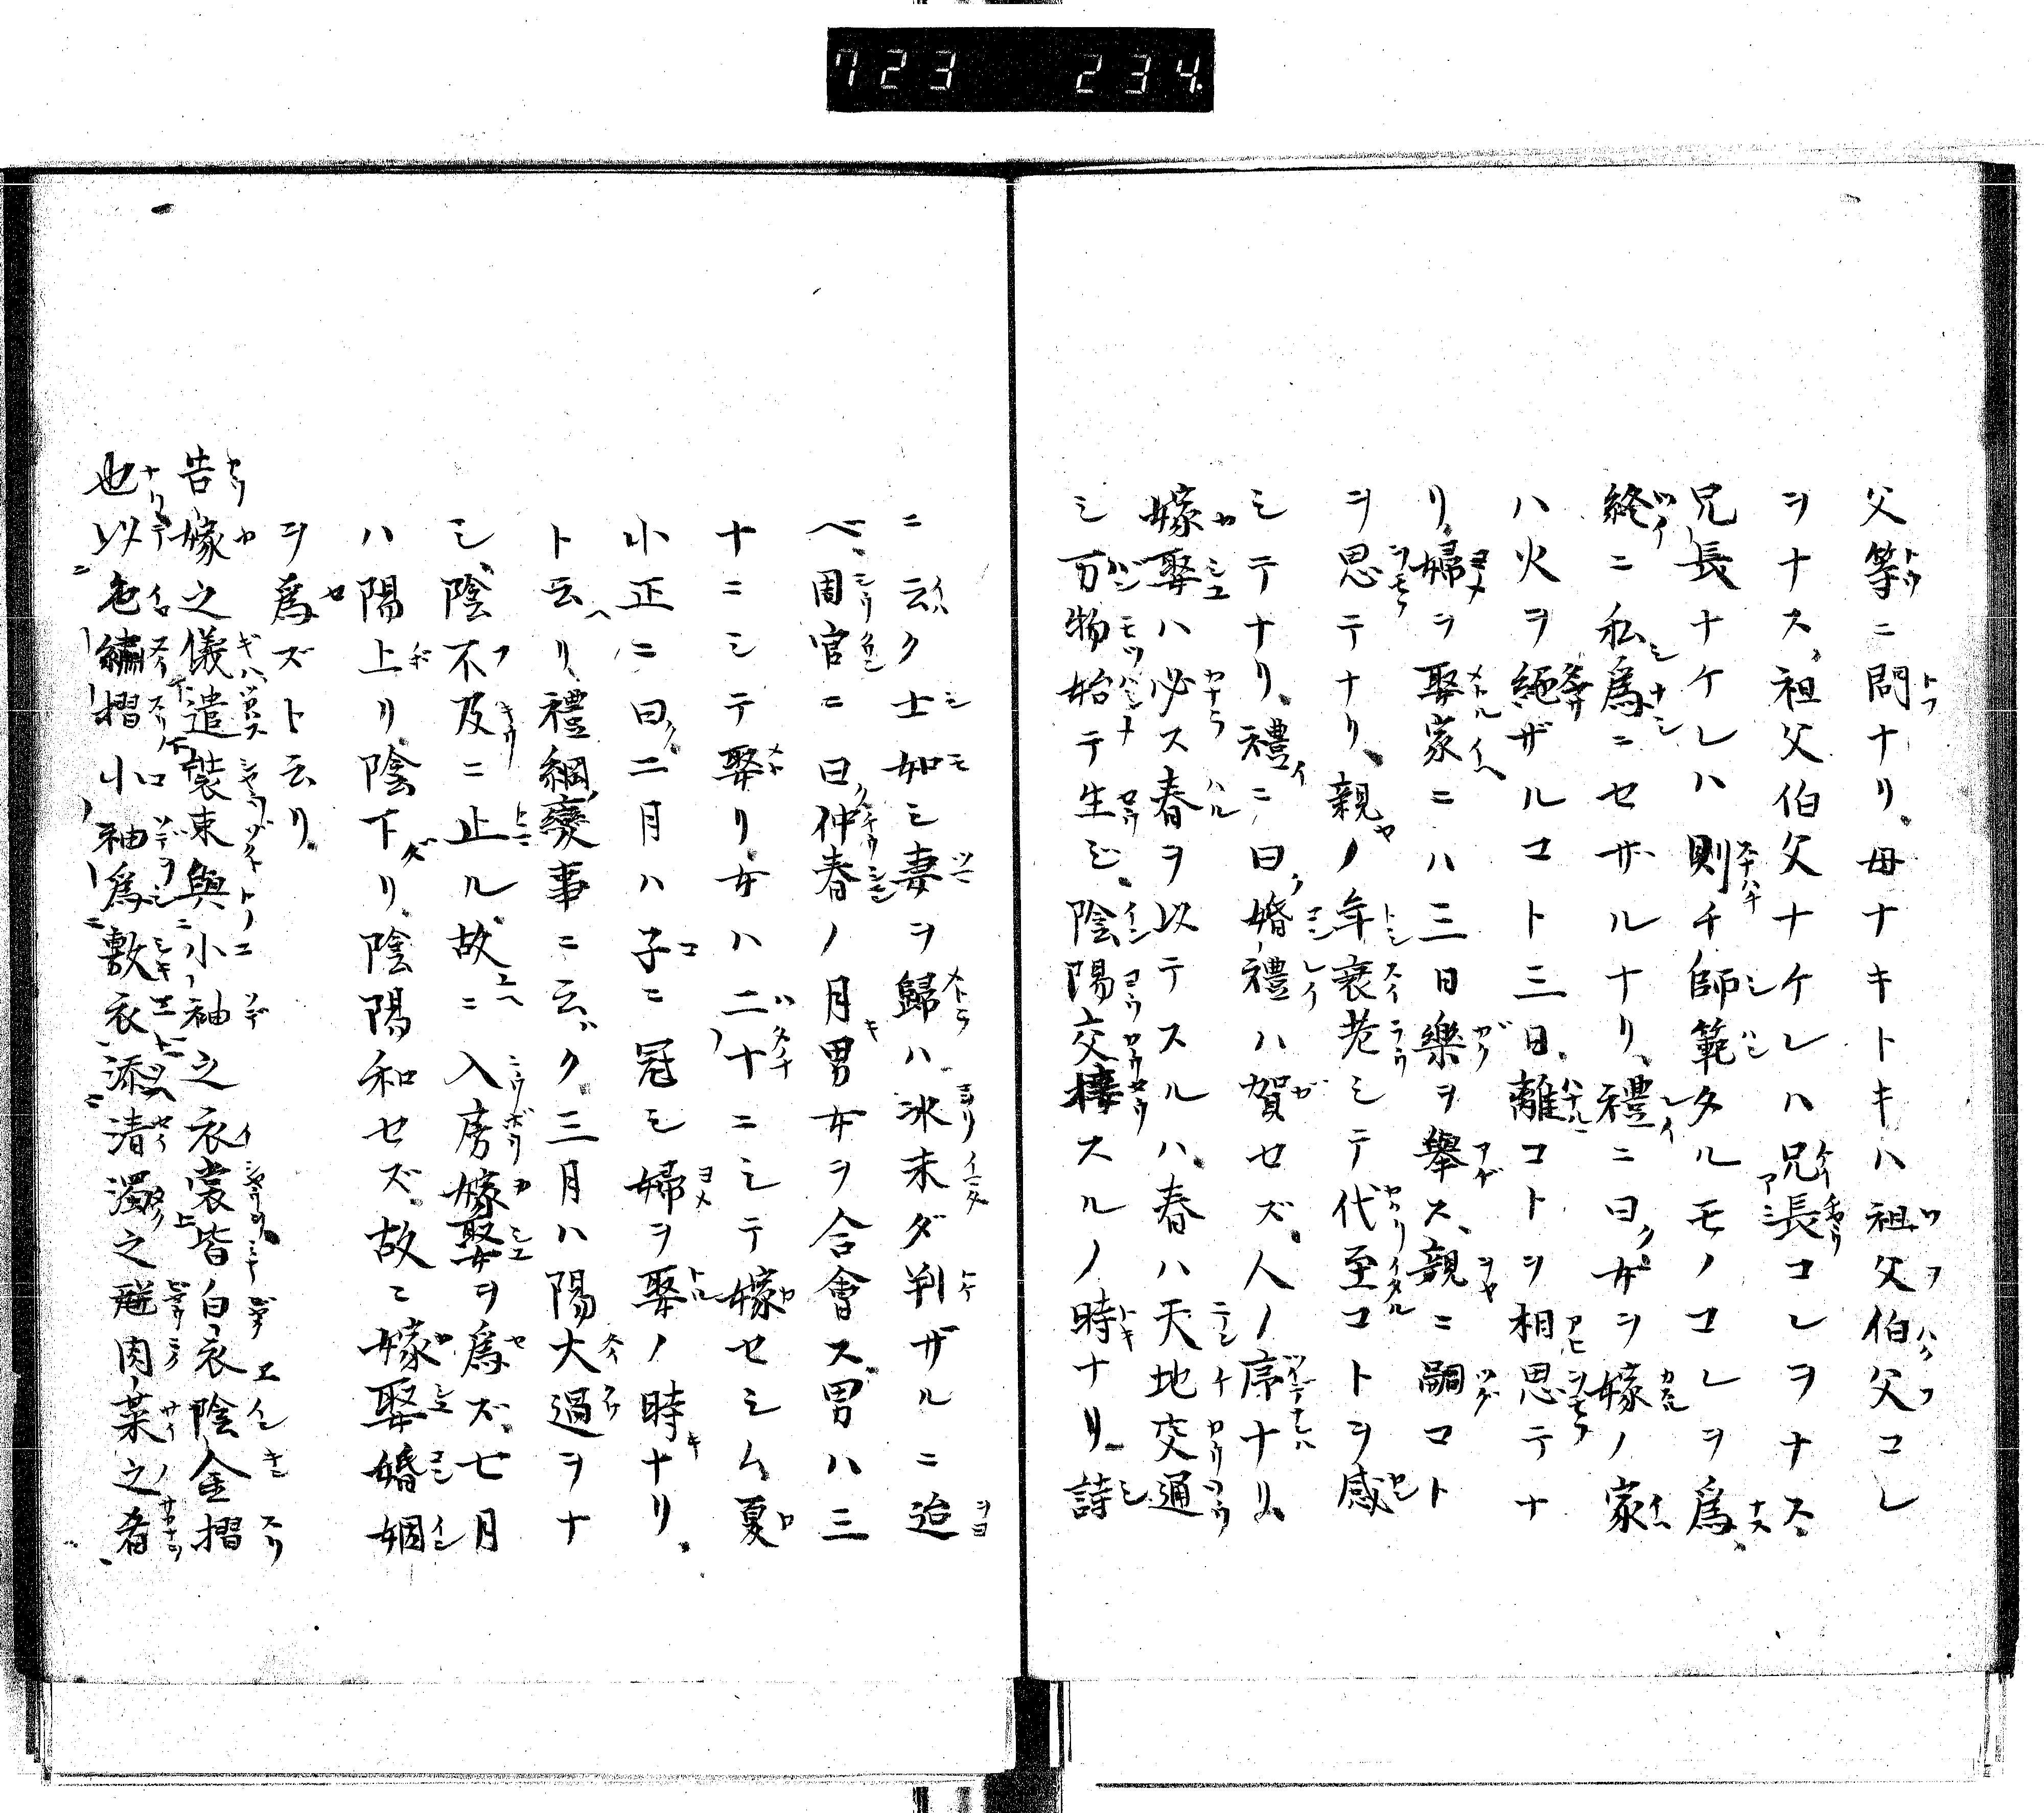 723 234.
父等ニ問ナリ。母ナキトキハ祖父伯父コレ
ヲナス、祖父伯父ナケレハ兄長コレヲナス、
兄長ナケレハ則チ師範タルモノコレヲ爲、
終ニ私爲ニセザルナリ、禮ニ曰ク女ヲ嫁ノ家
ハ火ヲ絶ザルコト三日、離コトヲ相思テナ
リ、婦ヲ娶家ニハ三日樂ヲ擧ス、親ニ嗣コト
ヲ思テナリ、親ノ年衰老シテ代至コトヲ感
シテナリ、禮ニ曰ク婚禮ハ賀セズ、人ノ序ナリ、
嫁娶ハ必ス春ヲ以テスルハ、春ハ天地交通
シ万物始テ生ジ、陰陽交接スルノ時ナリ、詩
ニ云ク士如シ妻ヲ歸ハ冰未ダ判ザルニ迨
ベ、周官ニ曰ク仲春ノ月男女ヲ合會ス、男ハ三
十ニシテ娶リ女ハ二十ニシテ嫁セシム夏
小正ニ曰ク二月ハ子ニ冠シ婦ヲ娶ノ時ナリ。
ト云ヘリ、禮綱變事ニ云ク、三月ハ陽大過ヲナ
シ、陰不及ニ止ル故ニ入房嫁娶ヲ爲ズ、七月
ハ陽上リ陰下リ、陰陽和セズ、故ニ嫁娶婚姻
ヲ爲ズト云リ。
告嫁之儀遣裝束與小袖之衣裳皆白衣陰金摺
也以色繍摺小袖爲敷衣添清濁之 肉菜之肴